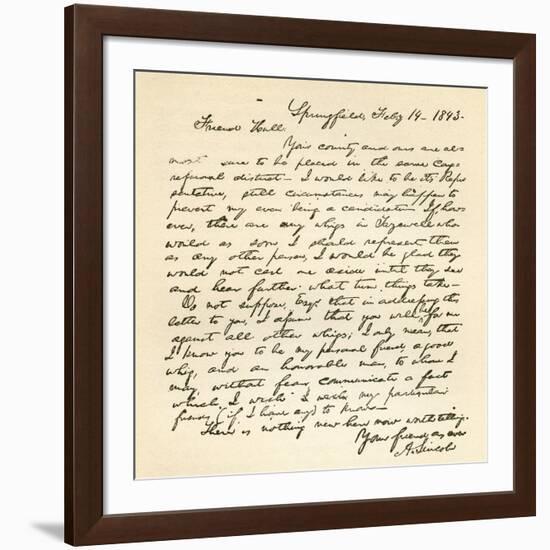 Springfield, Feby 14 - 1843 -
Friend Hull.
Your county and ours are al-
most sure to be placed in the same Cong-
ressional district - I would like to be its Repre
sentative; still circumstances may happen to
prevent my even being a candidate - If, how-
ever, there are any whigs in Tazewell who
would as soon I should represent them
as any other person, I would be glad they
would not cast me aside until they see
and hear farther what turn things take -
Do not suppose, Esqr. that in addressing this
letter to you, I assume that you will be for me
against all other whigs; I only mean, that
I know you to be my personal friend, a good
whig, and an honorable man, to whom I
may, without fear, communicate a fact
which I wish my particular
friends (if I have any) to know -
There is nothing new here now worth telling.
Your friend, as ever
A. Lincoln